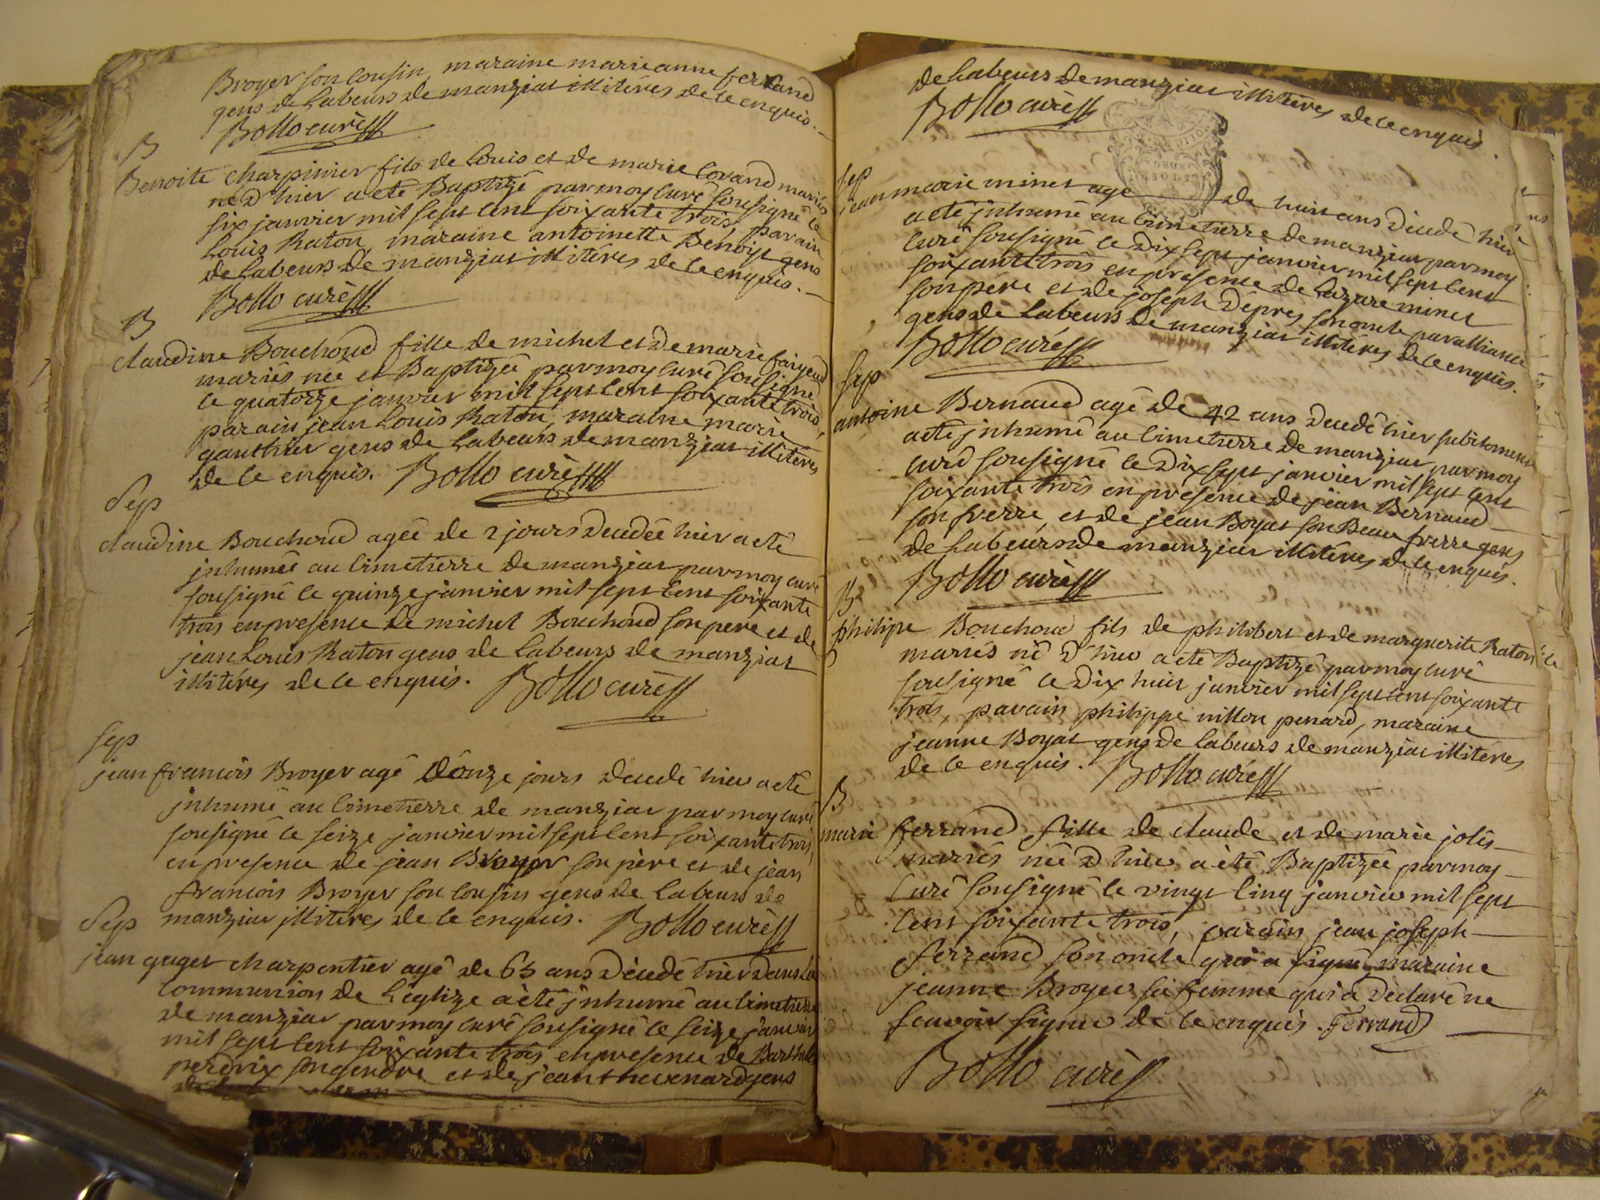 Broyer son cousin, maraine marie anne ferrand
gens de labeurs de manziat illiteres de ce enquis.
Bollo curé
B
Benoite charpinier fils de Louis et de marie Corand mariés
né d'hier a eté Baptizé par moy curé sousigné le
six janvier mil sept cent soixante trois, parain
Louis Raton, maraine antoinette Benoist gens
de labeurs de manziat illiteres de ce enquis.
Bollo curé
B
claudine Bouchoud fille de michel et de marie
mariés née et Baptizée par moy curé sousigné
le quatorze janvier mil sept cent soixante trois,
parain jean Louis Raton, maraine marie
gauthier gens de labeurs de manziat illiteres
de ce enquis. Bollo curé
Sep
claudine Bouchoud agée de 2 jours decedée hier a eté
inhumée au cimetierre de manziat par moy curé
sousigné le quinze janvier mil sept cent soixante
trois en presence de michel Bouchoud son pere et de
jean Louis Raton gens de labeurs de manziat
illiteres de ce enquis. Bollo curé
Sep
jean francois Broyer agé d'onze jours decedé hier a eté
inhumé au cimetierre de manziat par moy curé
sousigné le seize janvier mil sept cent soixante trois,
en presence de jean Broyer son père et de jean
francois Broyer son cousin gens de labeurs de
manziat illiteres de ce enquis. Bollo curé
Sep
jean guget charpentier agé de 65 ans décedé hier dans la
communion de l'eglize a èté inhumé au cimetierre
de manziat par moy curé sousigné le seize janvier
mil sept cent soixante trois en presence de
perdrix son gendre et de jean thevenard gens
de labeurs de manziat illiteres de ce enquis
Bollo curé
Sep
jean marie minet agé de huit ans décedé hier
a eté inhumé au cimetierre de manziat par moy
curé sousigné le dix sept janvier mil sept cent
soixante trois en presence de Lazare minet
son père et de joseph Depres son oncle par alliance
gens de labeurs de manziat illiteres de ce enquis.
Bollo curé
Sep
antoine Bernaud agé de 42 ans decedé hier subitement
a eté inhumé au cimetierre de manziat par moy
curé sousigné le dix sept janvier mil sept cent
soixante trois en presence de jean Bernaud
son frere, et de jean Boyat son Beau frere gens
de labeurs de manziat illiteres de ce enquis.
Bollo curé
B
philipe Bouchoud fils de philibert et de marguerite Raton
mariés né d'hier a eté Baptizé par moy curé
sousigné le dix huit janvier mil sept cent soixante
trois, parain philippe nillon penard, maraine
jeanne Boyat gens de labeurs de manziat illiteres
de ce enquis. Bollo curé
B
marie ferrand fille de claude et de marie jolis
mariés née d'hier a èté Baptizée par moy
curé sousigné le vingt cinq janvier mil sept
cent soixante trois, parain jean joseph
ferrand son oncle qui a signé maraine
jeanne Broyer sa femme qui a declaré ne
scavoir signer de ce enquis. Ferrand
Bollo curé